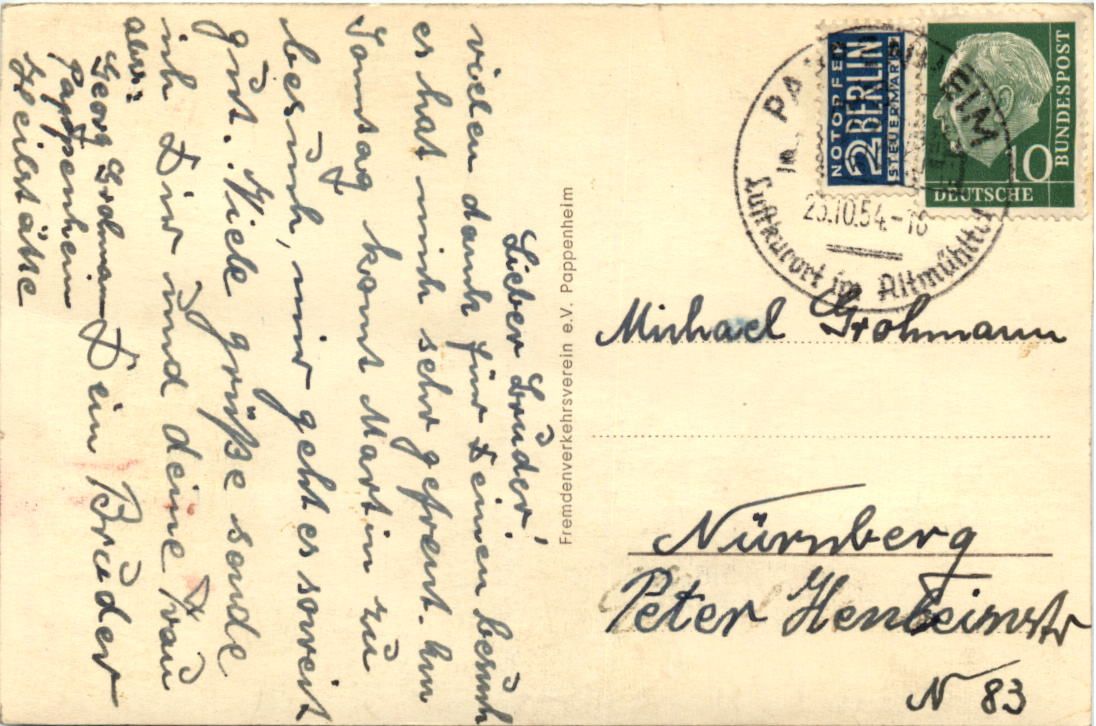 Lieber Bruder!
vielen dank für Deinen besuch
es hat mich sehr gefreut. Am
Samstag komt Martin zu
besuch, mir geht es soweit
gut. Viele grüße sende
ich Dir und deine Frau
Dein Bruder
abs:
Georg Grohman
Pappenheim
Heilstätte
Fremdenverkehrsverein e.V. Pappenheim
NOTOPFER
2 BERLIN
STEUERMARKE
10
DEUTSCHE
BUNDESPOST
PAPPENHEIM
23.10.54.-16
Luftkurort im Altmühltal
Michael Grohmann
Nürnberg
Peter Henleinstr
N 83